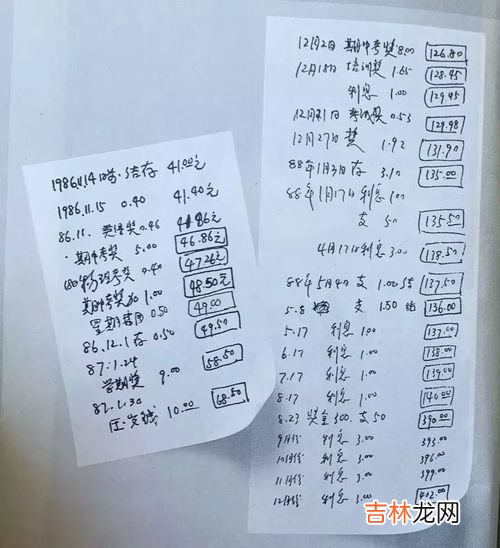 1986.11.14日第一次结存 41.00元
1986.11.15 0.40 41.40元
86.11. 英语奖0.46 41.86元
期中考奖 5.00 46.86元
考奖 0.40 47.26元
期中考奖 1.00 48.50元
星期 0.50 49.00
86.12.1存 0.50 49.50
87.1.24
学期奖 9.00 58.50
87.1.30
压岁钱 10.00 68.50
12月2日 期中考奖8.00 126.80
12月18日 培训奖 1.65 128.45
利息 1.00 129.45
12月21日 考试奖 0.53 129.98
12月27日 奖 1.92 131.90
88年1月3日存 3.10 135.00
88年1月17日利息 1.00
支 50 135.50
4月17日利息 3.00 138.50
88年5月4日 支 1.00 结 137.50
5.8 支 1.50 结 136.00
5.17 利息 1.00 137.00
6.17 利息 1.00 138.00
7.17 利息 1.00 139.00
8.17 利息 1.00 140.00
8.23 奖金 300. 支50 390.00
9月份 利息 3.00 393.00
10月份 利息 3.00 396.00
11月份 利息 3.00 399.00
12月份 利息 3.00 402.00
吉林龙网